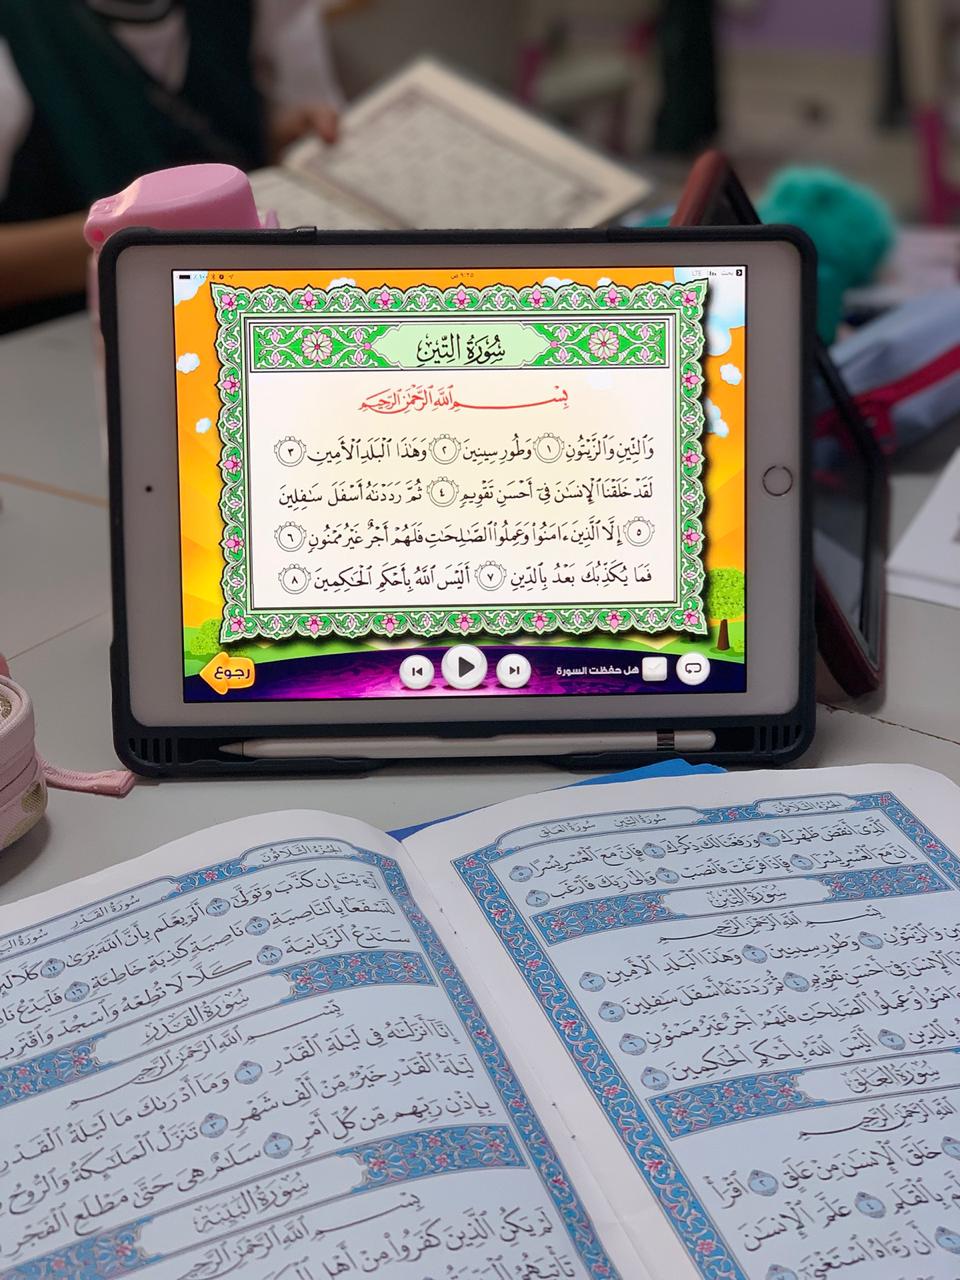 ٩:٢٥ ص
LTE
بحث
سُورَةُ التِّينِ
بِسْمِ ٱللَّهِ ٱلرَّحْمَٰنِ ٱلرَّحِيمِ
وَٱلتِّينِ وَٱلزَّيْتُونِ ١ وَطُورِ سِينِينَ ٢ وَهَٰذَا ٱلْبَلَدِ ٱلْأَمِينِ ٣
لَقَدْ خَلَقْنَا ٱلْإِنسَٰنَ فِىٓ أَحْسَنِ تَقْوِيمٍ ٤ ثُمَّ رَدَدْنَٰهُ أَسْفَلَ سَٰفِلِينَ
٥ إِلَّا ٱلَّذِينَ ءَامَنُوا۟ وَعَمِلُوا۟ ٱلصَّٰلِحَٰتِ فَلَهُمْ أَجْرٌ غَيْرُ مَمْنُونٍ ٦
فَمَا يُكَذِّبُكَ بَعْدُ بِٱلدِّينِ ٧ أَلَيْسَ ٱللَّهُ بِأَحْكَمِ ٱلْحَٰكِمِينَ ٨
رجوع
هل حفظت السورة
الجُزْءُ الثَّلَاثُونَ
سُورَةُ التِّينِ سُورَةُ العَلَقِ
ٱلَّذِىٓ أَنقَضَ ظَهْرَكَ ٣ وَرَفَعْنَا لَكَ ذِكْرَكَ ٤ فَإِنَّ مَعَ ٱلْعُسْرِ يُسْرًا ٥
إِنَّ مَعَ ٱلْعُسْرِ يُسْرًا ٦ فَإِذَا فَرَغْتَ فَٱنصَبْ ٧ وَإِلَىٰ رَبِّكَ فَٱرْغَب ٨
سُورَةُ التِّينِ
بِسْمِ ٱللَّهِ ٱلرَّحْمَٰنِ ٱلرَّحِيمِ
وَٱلزَّيْتُونِ ١ وَطُورِ سِينِينَ ٢ وَهَٰذَا ٱلْبَلَدِ ٱلْأَمِينِ ٣
ٱلْإِنسَٰنَ فِىٓ أَحْسَنِ تَقْوِيمٍ ٤ ثُمَّ رَدَدْنَٰهُ أَسْفَلَ سَٰفِلِينَ ٥
وَعَمِلُوا۟ ٱلصَّٰلِحَٰتِ فَلَهُمْ أَجْرٌ غَيْرُ مَمْنُونٍ ٦
بِٱلدِّينِ ٧ أَلَيْسَ ٱللَّهُ بِأَحْكَمِ ٱلْحَٰكِمِينَ ٨
سُورَةُ العَلَقِ
ٱللَّهِ ٱلرَّحْمَٰنِ ٱلرَّحِيمِ
خَلَقَ ٱلْإِنسَٰنَ مِنْ عَلَقٍ ٢ ٱقْرَأْ
بِٱلْقَلَمِ ٤ عَلَّمَ ٱلْإِنسَٰنَ
أَن رَّءَاهُ ٱسْتَغْنَىٰٓ
الجُزْءُ الثَّلَاثُونَ
سُورَةُ القَدْرِ
إِن كَذَّبَ وَتَوَلَّىٰٓ ١٣ أَلَمْ يَعْلَم بِأَنَّ ٱللَّهَ يَرَىٰ ١٤ كَلَّا
لَنَسْفَعًۢا بِٱلنَّاصِيَةِ ١٥ نَاصِيَةٍ كَٰذِبَةٍ خَاطِئَةٍ ١٦ فَلْيَدْعُ
سَنَدْعُ ٱلزَّبَانِيَةَ ١٨ كَلَّا لَا تُطِعْهُ وَٱسْجُدْ وَٱقْتَرِب
سُورَةُ القَدْرِ
بِسْمِ ٱللَّهِ ٱلرَّحْمَٰنِ ٱلرَّحِيمِ
إِنَّآ أَنزَلْنَٰهُ فِى لَيْلَةِ ٱلْقَدْرِ ١ وَمَآ أَدْرَىٰكَ مَا لَيْلَةُ ٱلْقَدْرِ
لَيْلَةُ ٱلْقَدْرِ خَيْرٌ مِّنْ أَلْفِ شَهْرٍ ٣ تَنَزَّلُ ٱلْمَلَٰٓئِكَةُ وَٱلرُّوحُ
بِإِذْنِ رَبِّهِم مِّن كُلِّ أَمْرٍ ٤ سَلَٰمٌ هِىَ حَتَّىٰ مَطْلَعِ ٱلْفَجْرِ
سُورَةُ البَيِّنَةِ
بِسْمِ ٱللَّهِ ٱلرَّحْمَٰنِ ٱلرَّحِيمِ
لَمْ يَكُنِ ٱلَّذِينَ كَفَرُوا۟ مِنْ أَهْلِ